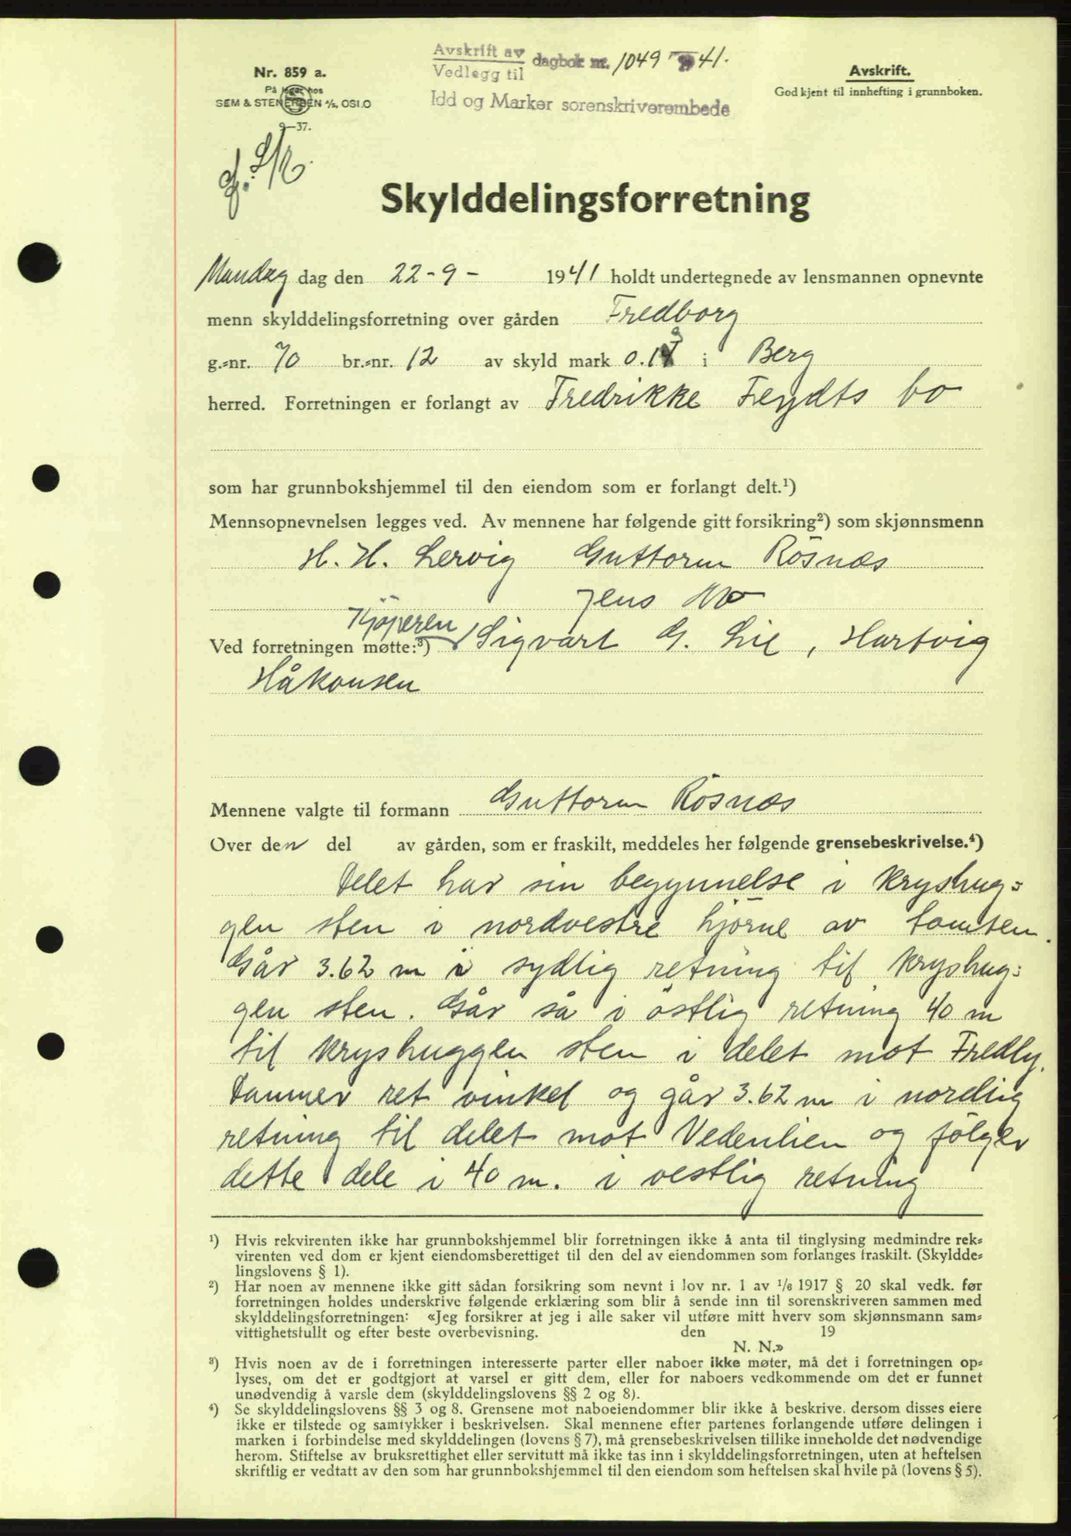 Avskrift av
Vedlegg til dagbok nr. 1049 41.
Idd og Marker sorenskriverembede
Nr. 859 a.
På lager hos
SEM & STENERSEN A/S, OSLO
9-37.
Avskrift.
Godkjent til innhefting i grunnboken.
Skylddelingsforretning
Mandag dag den 22-9- 1941 holdt undertegnede av lensmannen opnevnte
menn skylddelingsforretning over gården Fredborg
g.-nr. 70 br.-nr. 12 av skyld mark 0.13 i Berg
herred. Forretningen er forlangt av Fredrikke Feydts bo
som har grunnbokshjemmel til den eiendom som er forlangt delt.¹)
Mennsopnevnelsen legges ved. Av mennene har følgende gitt forsikring²) som skjønnsmenn
H. H. Lervig Guttorm Rösnæs
Jens Mo
Kjøperen
Ved forretningen møtte:³) Sigvart G. Lie, Hartvig
Håkonsen
Mennene valgte til formann Guttorm Rösnæs
Over den del av gården, som er fraskilt, meddeles her følgende grensebeskrivelse.⁴)
Delet har sin begynnelse i kryshug=
gen sten i nordvestre hjörne av tomten.
Går 3.62 m i sydlig retning til kryshug=
gen sten. Går så i östlig retning 40 m
til kryshuggen sten i delet mot Fredly.
Danner ret vinkel og går 3.62 m i nordlig
retning til delet mot Vedenlien og fölger
dette dele i 40 m. i vestlig retning
¹) Hvis rekvirenten ikke har grunnbokshjemmel blir forretningen ikke å anta til tinglysing medmindre rek=
virenten ved dom er kjent eiendomsberettiget til den del av eiendommen som forlanges fraskilt. (Skyldde=
lingslovens § 1).
²) Har noen av mennene ikke gitt sådan forsikring som nevnt i lov nr. 1 av 1/6 1917 § 20 skal vedk. før
forretningen holdes underskrive følgende erklæring som blir å sende inn til sorenskriveren sammen med
skylddelingsforretningen: «Jeg forsikrer at jeg i alle saker vil utføre mitt hverv som skjønnsmann sam=
vittighetsfullt og efter beste overbevisning. den 19
N. N.»
³) Hvis noen av de i forretningen interesserte parter eller naboer ikke møter, må det i forretningen op=
lyses, om det er godtgjort at varsel er gitt dem, eller for naboers vedkommende om det er funnet
unødvendig å varsle dem (skylddelingslovens §§ 2 og 8).
⁴) Se skylddelingslovens §§ 3 og 8. Grensene mot naboeiendommer blir ikke å beskrive, dersom disses eiere
ikke er tilstede og samtykker i beskrivelsen. Skal mennene efter partenes forlangende utføre delingen i
marken i forbindelse med skylddelingen (lovens § 7), må grensebeskrivelsen tillike inneholde det nødvendige
herom. Stiftelse av bruksrettighet eller servitutt må ikke tas inn i skylddelingsforretningen, uten at heftelsen
skriftlig er vedtatt av den som har grunnbokshjemmel til den eiendom som heftelsen skal hvile på (lovens § 5).